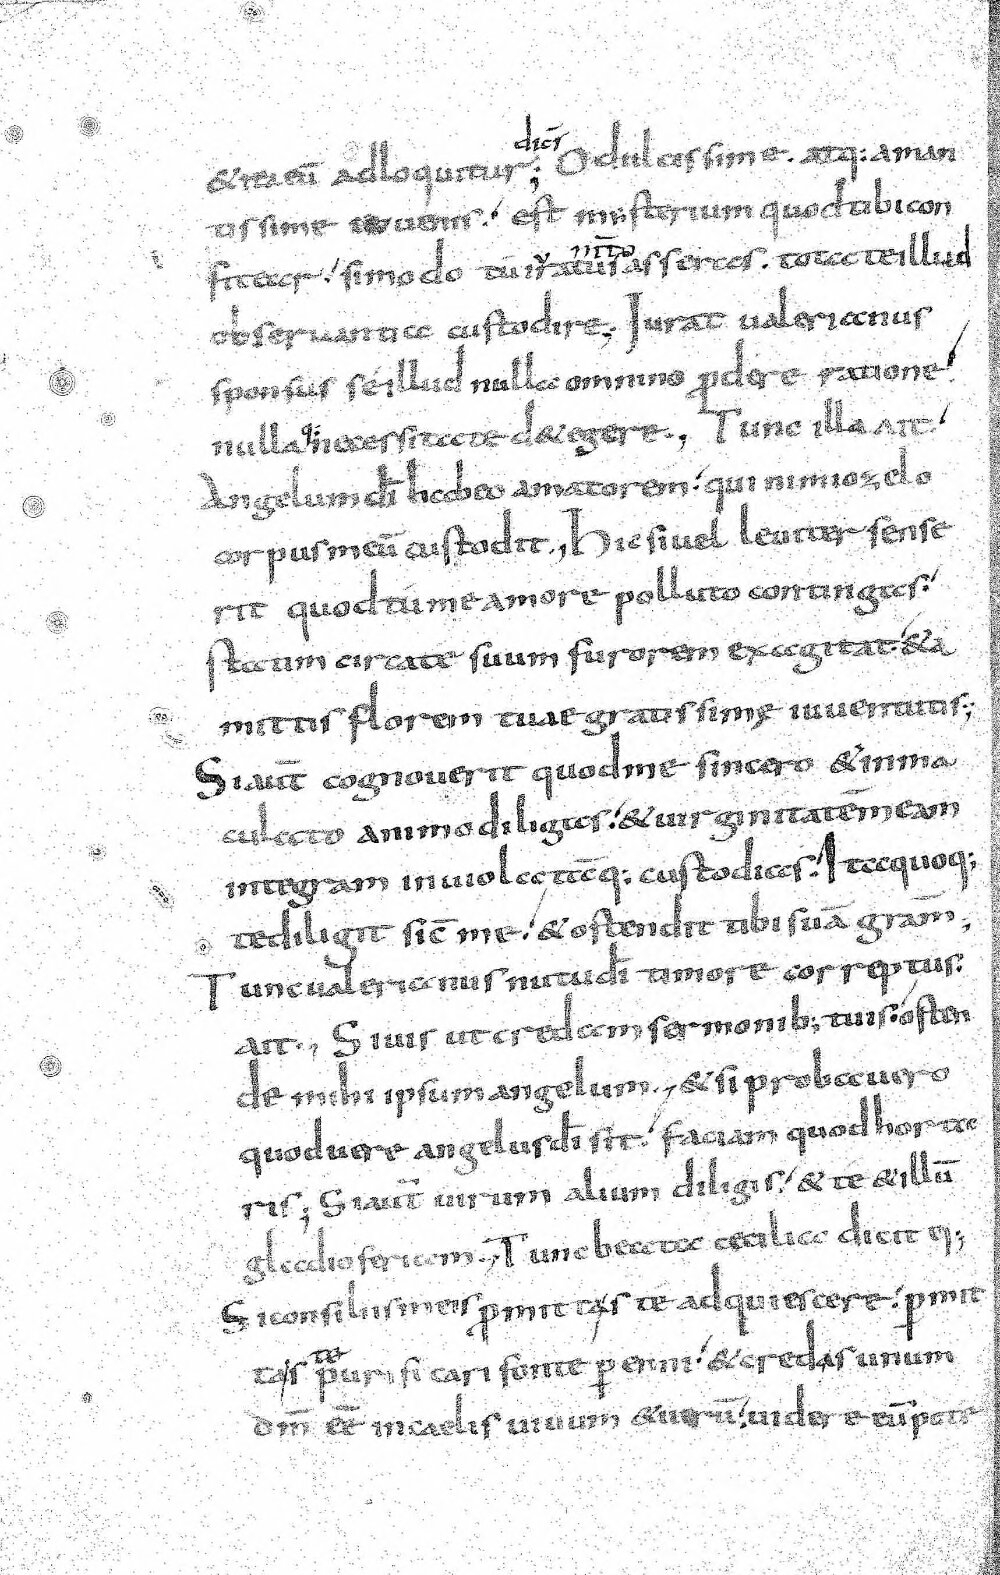 & ita eū adloquitur; dicēs O dulcissime. atq: aman
tissime iuuenis. est misterium quod tibi con
fitear. si modo tu iuratus asseras. tota te illud
obseruantia custodire; Iurat ualerianus
sponsus sé illud nulla omnino ꝓdere ratione
nulla q; necessitate d&egere., Tunc illa ait
Angelum dī habeo amatorem. qui nimio zelo
corpus meū custodit., Hic si uel leuiter sense
rit quod tú me amore polluto contingas.
statim circa te suum furorem exagitat. & a
mittis florem tuae gratissime iuuentutis;
Si aut̄ cognouerit quod me sincero & inma
culato animo diligas. & uirginitatē meam
integram inuiolatāq; custodias. Ita quoq;
te diligit sic̄ me. & ostendit tibi suā gram̄;
Tunc ualerianus nutu dī timore correptus.
ait., Si uis ut credam sermonib; tuis. osten
de mihi ipsum angelum., & si probauero
quod uere angelus dī sit. faciam quod horta
ris; Si aut̄ uirum alium diligis. & te & illū
gladio feriam., Tunc beata cecilia dicit ei;
Si consiliis meis ꝓmittas te adquiescere. ꝑmit
tas te purificari fonte ꝑenni. & credas unum
dm̄ eē in caelis uiuum & uerū. uidere eū potes